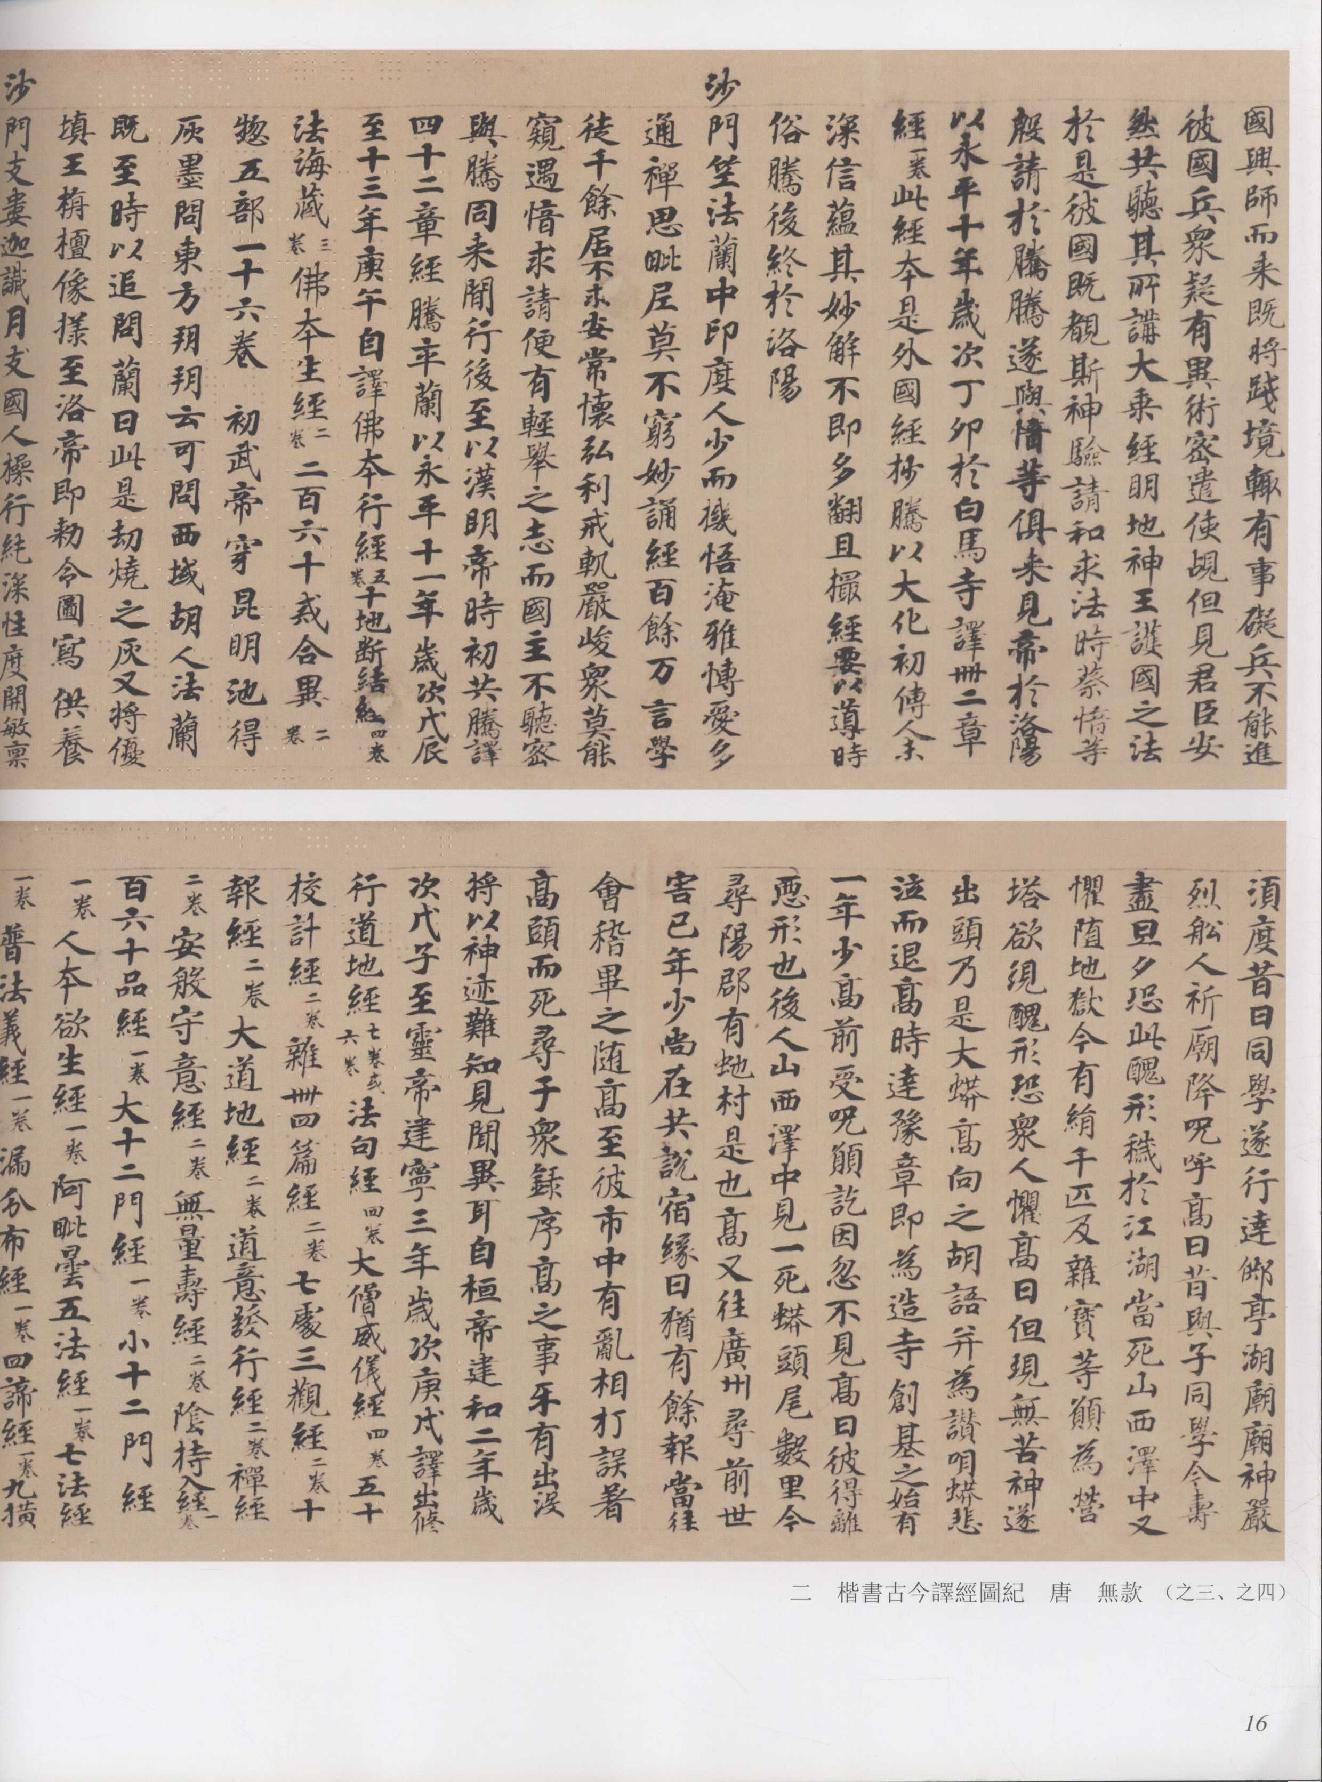 國興師而来既將踐境輙有事礙兵不能進
彼國兵衆疑有異術密遣使覘但見君臣安
然共聽其所講大乘經明地神王護國之法
於是彼國既覩斯神驗請和求法時蔡愔等
殷請於騰騰遂與愔等俱来見帝於洛陽
以永平十年歲次丁卯於白馬寺譯卌二章
經一卷此經本是外國經抄騰以大化初傳人未
深信蘊其妙解不即多翻且撮經要以導時
俗騰後終於洛陽
沙門竺法蘭中印度人少而機悟淹雅愽愛多
通禪思毗尼莫不窮妙誦經百餘万言學
徒千餘居不求安常懷弘利戒軌嚴峻衆莫能
窺遇愔求請便有輕舉之志而國主不聽密
與騰同来間行後至以漢明帝時初共騰譯
四十二章經騰卒蘭以永平十一年歲次戊辰
至十三年庚午自譯佛本行經五卷十地断結經四卷
法海蔵三卷佛本生經二卷二百六十戒合異二卷
惣五部一十六卷 初武帝穿昆明池得
灰墨問東方朔朔云可問西域胡人法蘭
既至時以追問蘭曰此是劫燒之灰又將優
填王栴檀像様至洛帝即勑令圖寫供養
沙門支婁迦讖月支國人操行純深性度開敏稟
須度昔日同學遂行達䢼亭湖廟廟神嚴
烈舩人祈廟降呪呼高曰昔與子同學今壽
盡旦夕恐此醜形穢於江湖當死山西澤中又
懼堕地獄今有絹千匹及雜寶等願為營
塔欲現醜形恐衆人懼高曰但現無苦神遂
出頭乃是大蟒高向之胡語并為讃唄蟒悲
泣而退高時達豫章即為造寺創基之始有
一年少高前受呪願訖因忽不見高曰彼得離
惡形也後人山西澤中見一死蟒頭尾數里今
尋陽郡有虵村是也高又往廣州尋前世
害己年少尚在共說宿緣曰猶有餘報當往
會稽畢之随高至彼市中有亂相打誤著
高頭而死尋于衆錄序高之事牙有出没
將以神迹難知見聞異耳自桓帝建和二年歲
次戊子至靈帝建寧三年歲次庚戌譯出修
行道地經七卷或六卷法句經四卷大僧威儀經四卷五十
校計經二卷雜卌四篇經二卷七處三觀經二卷十
報經二卷大道地經二卷道意發行經二卷禪經
二卷安般守意經二卷無量壽經二卷陰持入經一卷
百六十品經一卷大十二門經一卷小十二門經
一卷人本欲生經一卷阿毗曇五法經一卷七法經
一卷普法義經一卷漏分布經一卷四諦經一卷九橫
二 楷書古今譯經圖紀 唐 無款 (之三、之四)
16